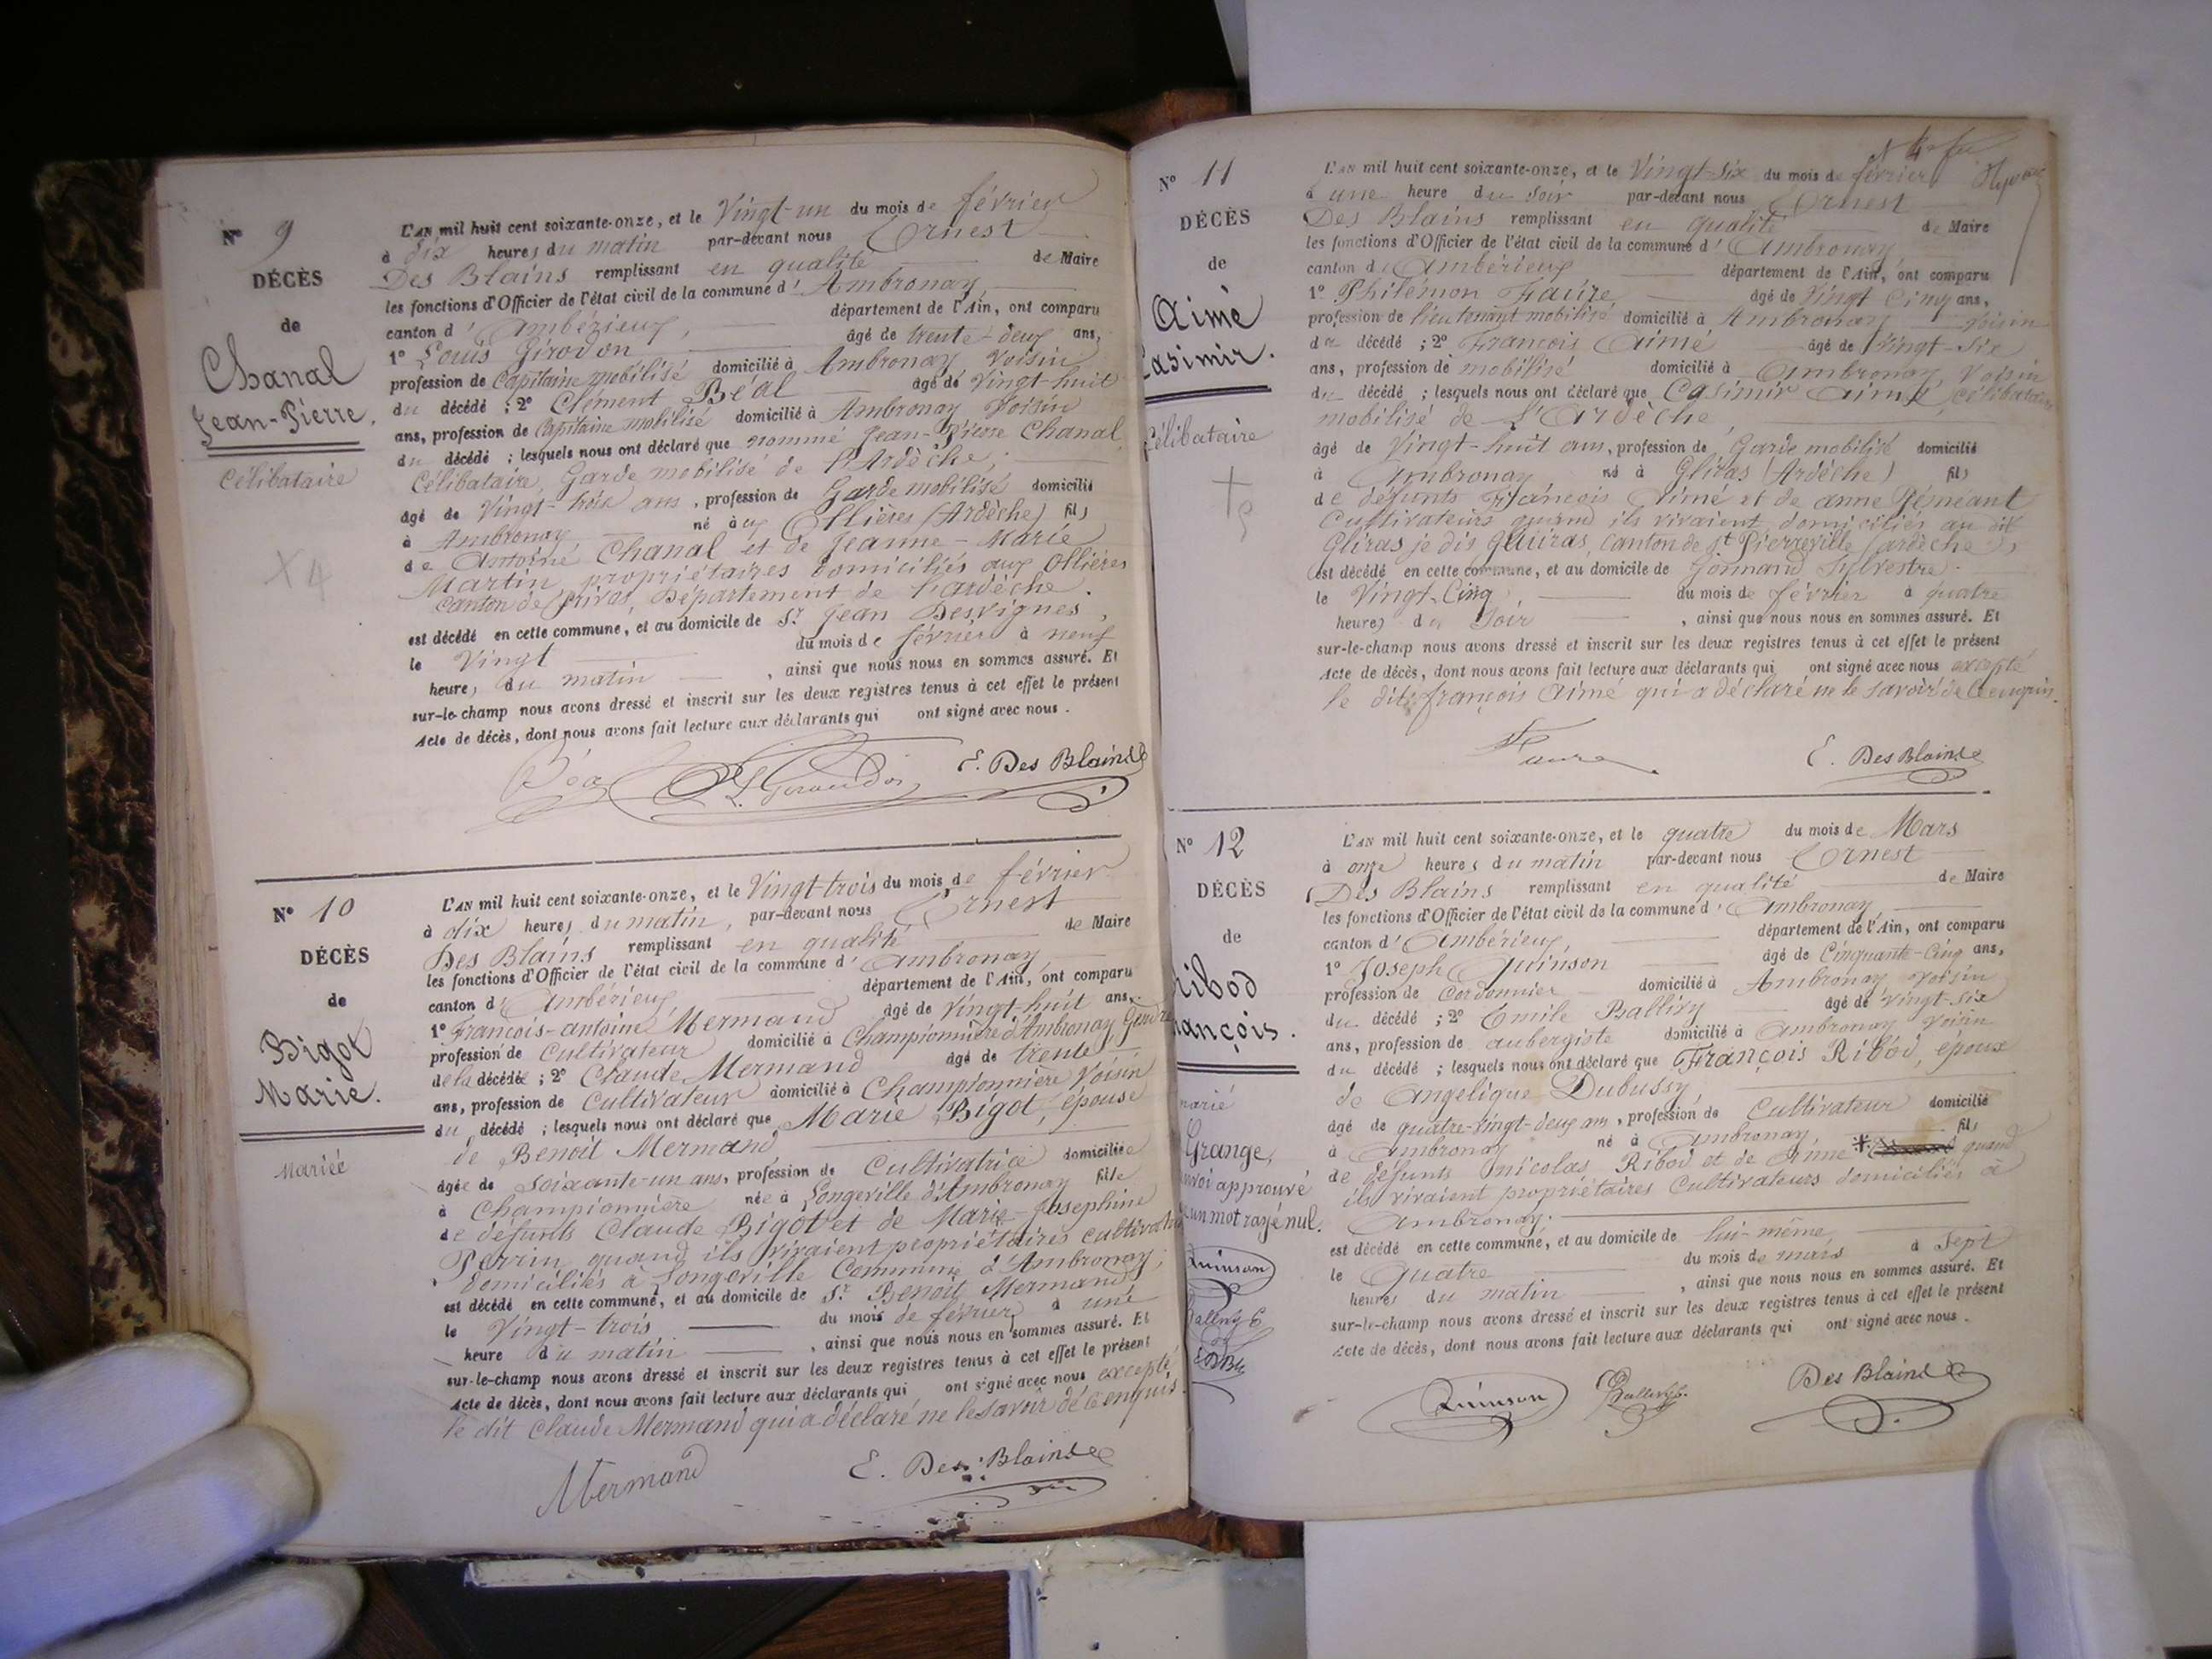 N° 9
DÉCÈS
de
Chanal
Jean-Pierre.
Célibataire
X 4
L'AN mil huit cent soixante-onze, et le Vingt-un du mois de février
à dix heures du matin par-devant nous Ernest
Des Blains remplissant en qualité de Maire
les fonctions d'Officier de l'état civil de la commune d'Ambronay,
canton d'Ambérieux, département de l'Ain, ont comparu
1° Louis Girodon âgé de trente-deux ans,
profession de Capitaine mobilisé domicilié à Ambronay Voisin
du décédé ; 2° Clément Béal âgé de Vingt-huit
ans, profession de Capitaine mobilisé domicilié à Ambronay Voisin
du décédé ; lesquels nous ont déclaré que nommé Jean-Pierre Chanal,
Célibataire, Garde mobilisé de l'Ardèche,
âgé de Vingt-trois ans, profession de Garde mobilisé domicilié
à Ambronay né aux Ollières (Ardèche) fils
de Antoine Chanal et de Jeanne-Marie
Martin, propriétaires domiciliés aux Ollières
Canton de Privas, Département de l'ardèche.
est décédé en cette commune, et au domicile de Sr Jean Desvignes,
le Vingt du mois de février à neuf
heures du matin, ainsi que nous nous en sommes assuré. Et
sur-le-champ nous avons dressé et inscrit sur les deux registres tenus à cet effet le présent
Acte de décès, dont nous avons fait lecture aux déclarants qui ont signé avec nous.
E. Des Blains
N° 10
DÉCÈS
de
Bigot
Marie.
Mariée
L'AN mil huit cent soixante-onze, et le Vingt-trois du mois de février
à dix heures du matin, par-devant nous Ernest
Des Blains remplissant en qualité de Maire
les fonctions d'Officier de l'état civil de la commune d'Ambronay,
canton d'Ambérieux, département de l'Ain, ont comparu
1° François-antoine Mermand âgé de Vingt-huit ans,
profession de Cultivateur domicilié à Championnière d'Ambronay Gendre
de la décédée ; 2° Claude Mermand âgé de trente
ans, profession de Cultivateur domicilié à Championnière Voisin
du décédé ; lesquels nous ont déclaré que Marie Bigot, épouse
de Benoit Mermand,
âgée de Soixante-un ans, profession de Cultivatrice domiciliée
à Championnière née à Longeville d'Ambronay fille
de défunts Claude Bigot et de Marie-Josephine
Perrin, quand ils vivaient propriétaires cultivateurs
domiciliés à Longeville Commune d'Ambronay,
est décédé en cette commune, et au domicile de Sr Benoit Mermand
le Vingt-trois du mois de février à une
heure du matin, ainsi que nous nous en sommes assuré. Et
sur-le-champ nous avons dressé et inscrit sur les deux registres tenus à cet effet le présent
Acte de décès, dont nous avons fait lecture aux déclarants qui ont signé avec nous excepté
le dit Claude Mermand qui a déclaré ne le savoir de ce enquis.
Mermand
E. Des Blains
N° 11
DÉCÈS
de
Aimé
Casimir.
Célibataire
L'AN mil huit cent soixante-onze, et le Vingt-Six du mois de février
à une heure du soir par-devant nous Ernest
Des Blains remplissant en qualité de Maire
les fonctions d'Officier de l'état civil de la commune d'Ambronay
canton d'Ambérieux département de l'Ain, ont comparu
1° Philémon Faure, âgé de Vingt Cinq ans,
profession de lieutenant mobilisé domicilié à Ambronay voisin
du décédé ; 2° François Aimé âgé de Vingt-Six
ans, profession de mobilisé domicilié à Ambronay Voisin
du décédé ; lesquels nous ont déclaré que Casimir Aimé, célibataire
mobilisé de L'Ardèche,
âgé de Vingt-huit ans, profession de Garde mobilisé domicilié
à Ambronay né à Gliras (Ardèche) fils
de défunts François Aimé et de anne
Cultivateurs quand ils vivaient domiciliés au dit
Gliras je dis Gluiras, Canton de St Pierreville (ardèche)
est décédé en cette commune, et au domicile de Gormand Sylvestre.
le Vingt-Cinq du mois de février à quatre
heures du Soir, ainsi que nous nous en sommes assuré. Et
sur-le-champ nous avons dressé et inscrit sur les deux registres tenus à cet effet le présent
Acte de décès, dont nous avons fait lecture aux déclarants qui ont signé avec nous excepté
le dit françois Aimé qui a déclaré ne le savoir de Ce enquis.
Faure
E. Des Blains
N° 12
DÉCÈS
de
Ribod
François.
marié
Grange,
renvoi approuvé
un mot rayé nul.
Quinson
Ballivy E
EDBl
L'AN mil huit cent soixante-onze, et le quatre du mois de Mars
à onze heures du matin par-devant nous Ernest
Des Blains remplissant en qualité de Maire
les fonctions d'Officier de l'état civil de la commune d'Ambronay,
canton d'Ambérieux, département de l'Ain, ont comparu
1° Joseph Quinson âgé de Cinquante-Cinq ans,
profession de Cordonnier domicilié à Ambronay voisin
du décédé ; 2° Emile Ballivy âgé de vingt-six
ans, profession de aubergiste domicilié à Ambronay voisin
du décédé ; lesquels nous ont déclaré que François Ribod, époux
de Angelique Dubussy
âgé de quatre-vingt-deux ans, profession de Cultivateur domicilié
à Ambronay né à Ambronay, fils
de défunts nicolas Ribod et de Anne * quand
ils vivaient propriétaires Cultivateurs domiciliés à
Ambronay.
est décédé en cette commune, et au domicile de lui-même,
le Quatre du mois de mars à Sept
heures du matin, ainsi que nous nous en sommes assuré. Et
sur-le-champ nous avons dressé et inscrit sur les deux registres tenus à cet effet le présent
Acte de décès, dont nous avons fait lecture aux déclarants qui ont signé avec nous.
Quinson
Ballivy E.
Des Blains